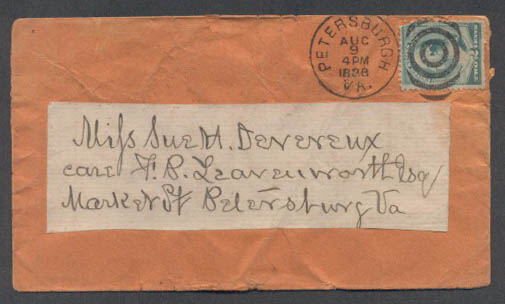 PETERSBURGH
AUG
9
4PM
1888
VA.
Miss Sue H. Devereux
care F. R. Leavenworth Esq
Market St Petersburg Va